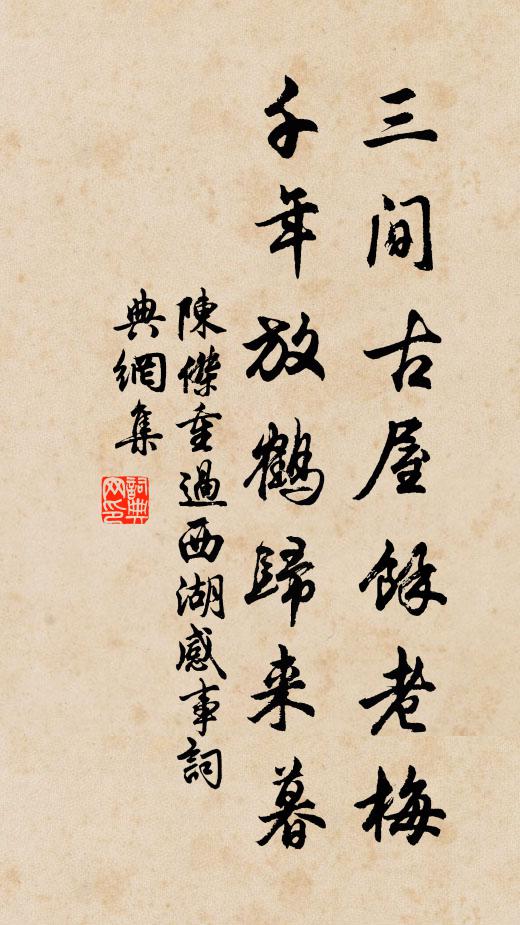 三间古屋餘老梅
千年放鶴歸来暮
陳傑重過西湖感事詞
典網集
詞典网印